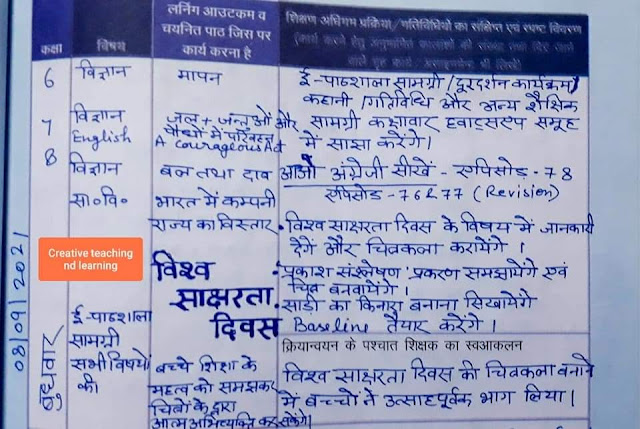 कक्षा
विषय
लर्निंग आउटकम व
चयनित पाठ जिस पर
कार्य करना है
शिक्षण अधिगम प्रक्रिया/गतिविधियों का संक्षिप्त एवं स्पष्ट विवरण
6
विज्ञान
मापन
ई-पाठशाला सामग्री/दूरदर्शन कार्यक्रम/
कहानी/गतिविधि और अन्य शैक्षिक
7
विज्ञान
जल + जन्तुओं और
सामग्री कक्षावार व्हाट्सएप समूह
English
पौधों में परिवहन
A courageous Act
में साझा करेंगे।
8
विज्ञान
बल तथा दाब
आओ अंग्रेजी सीखें - एपिसोड - 78
एपिसोड - 76 & 77 (Revision)
सा० वि०
भारत में कम्पनी
राज्य का विस्तार
• विश्व साक्षरता दिवस के विषय में जानकारी
देंगे और चित्रकला करायेंगे।
Creative teaching
nd learning
विश्व
साक्षरता
दिवस
• प्रकाश संश्लेषण प्रकरण समझायेंगे एवं
चित्र बनवायेंगे।
• साड़ी का किनारा बनाना सिखायेंगे
Baseline तैयार करेंगे।
क्रियान्वयन के पश्चात शिक्षक का स्वआकलन
08/09/2021
बुधवार
ई-पाठशाला
सामग्री
सभी विषयों
की।
बच्चे शिक्षा के
महत्व को समझकर
चित्रों के द्वारा
आत्म अभिव्यक्ति कर सकेंगे।
विश्व साक्षरता दिवस की चित्रकला बनाने
में बच्चों ने उत्साहपूर्वक भाग लिया।